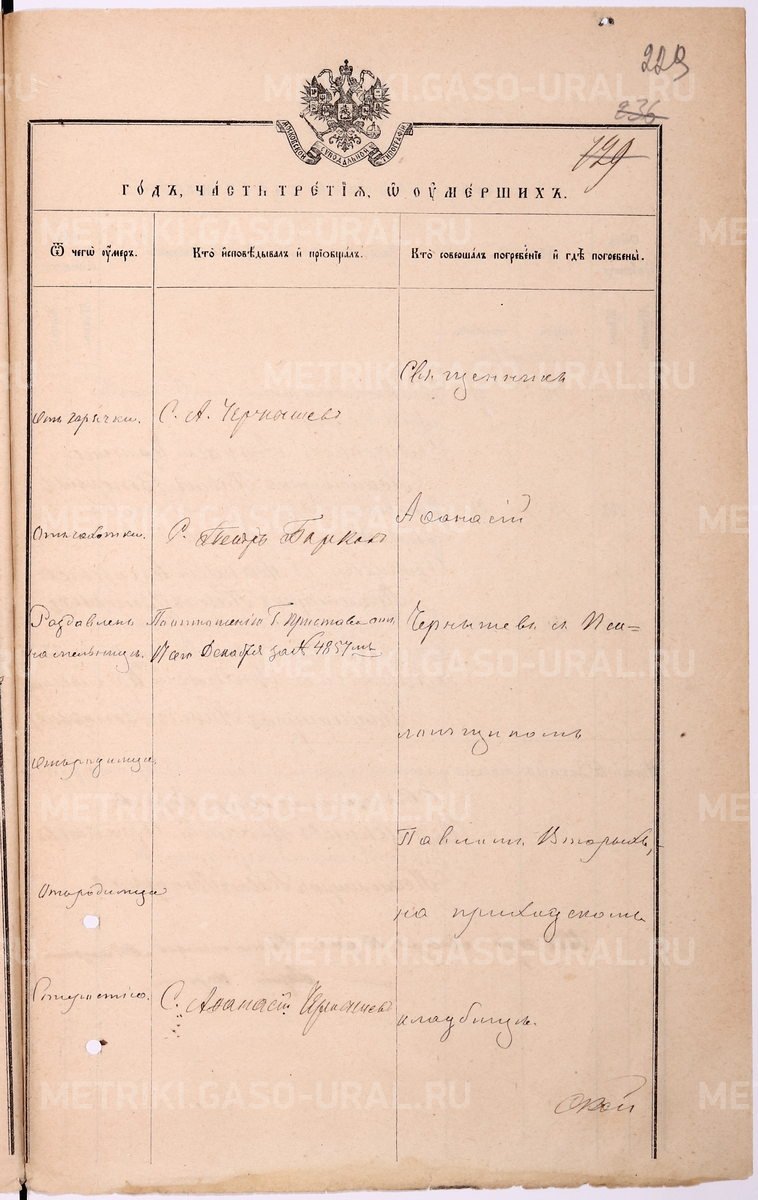 229
236
129
МОСКОВСКОЙ СѴНОДАЛЬНОЙ ТИПОГРАФІИ
ГОДЪ, ЧАСТЬ ТРЕТІѦ, Ѡ ОУМЕРШИХЪ.
Ѿ чегѡ оумеръ.
Кто исповѣдывалъ и пріобщалъ.
Кто совершалъ погребеніе и гдѣ погребены.
Священникъ
Отъ горячки.
С. А. Чернышевъ
Аѳанасій
Отъ чахотки.
С. Петръ
Раздавленъ
на мельницѣ.
По отношенію Г. Пристава отъ
Декабря за № 4857мъ
Чернышевъ съ Пса=
ломщикомъ
Отъ родимца
Павломъ Вторыхъ,
Отъ родимца
на приходскомъ
Отъ старости.
С. Аѳанасій Чернышевъ
кладбищѣ.
METRIKI.GASO-URAL.RU